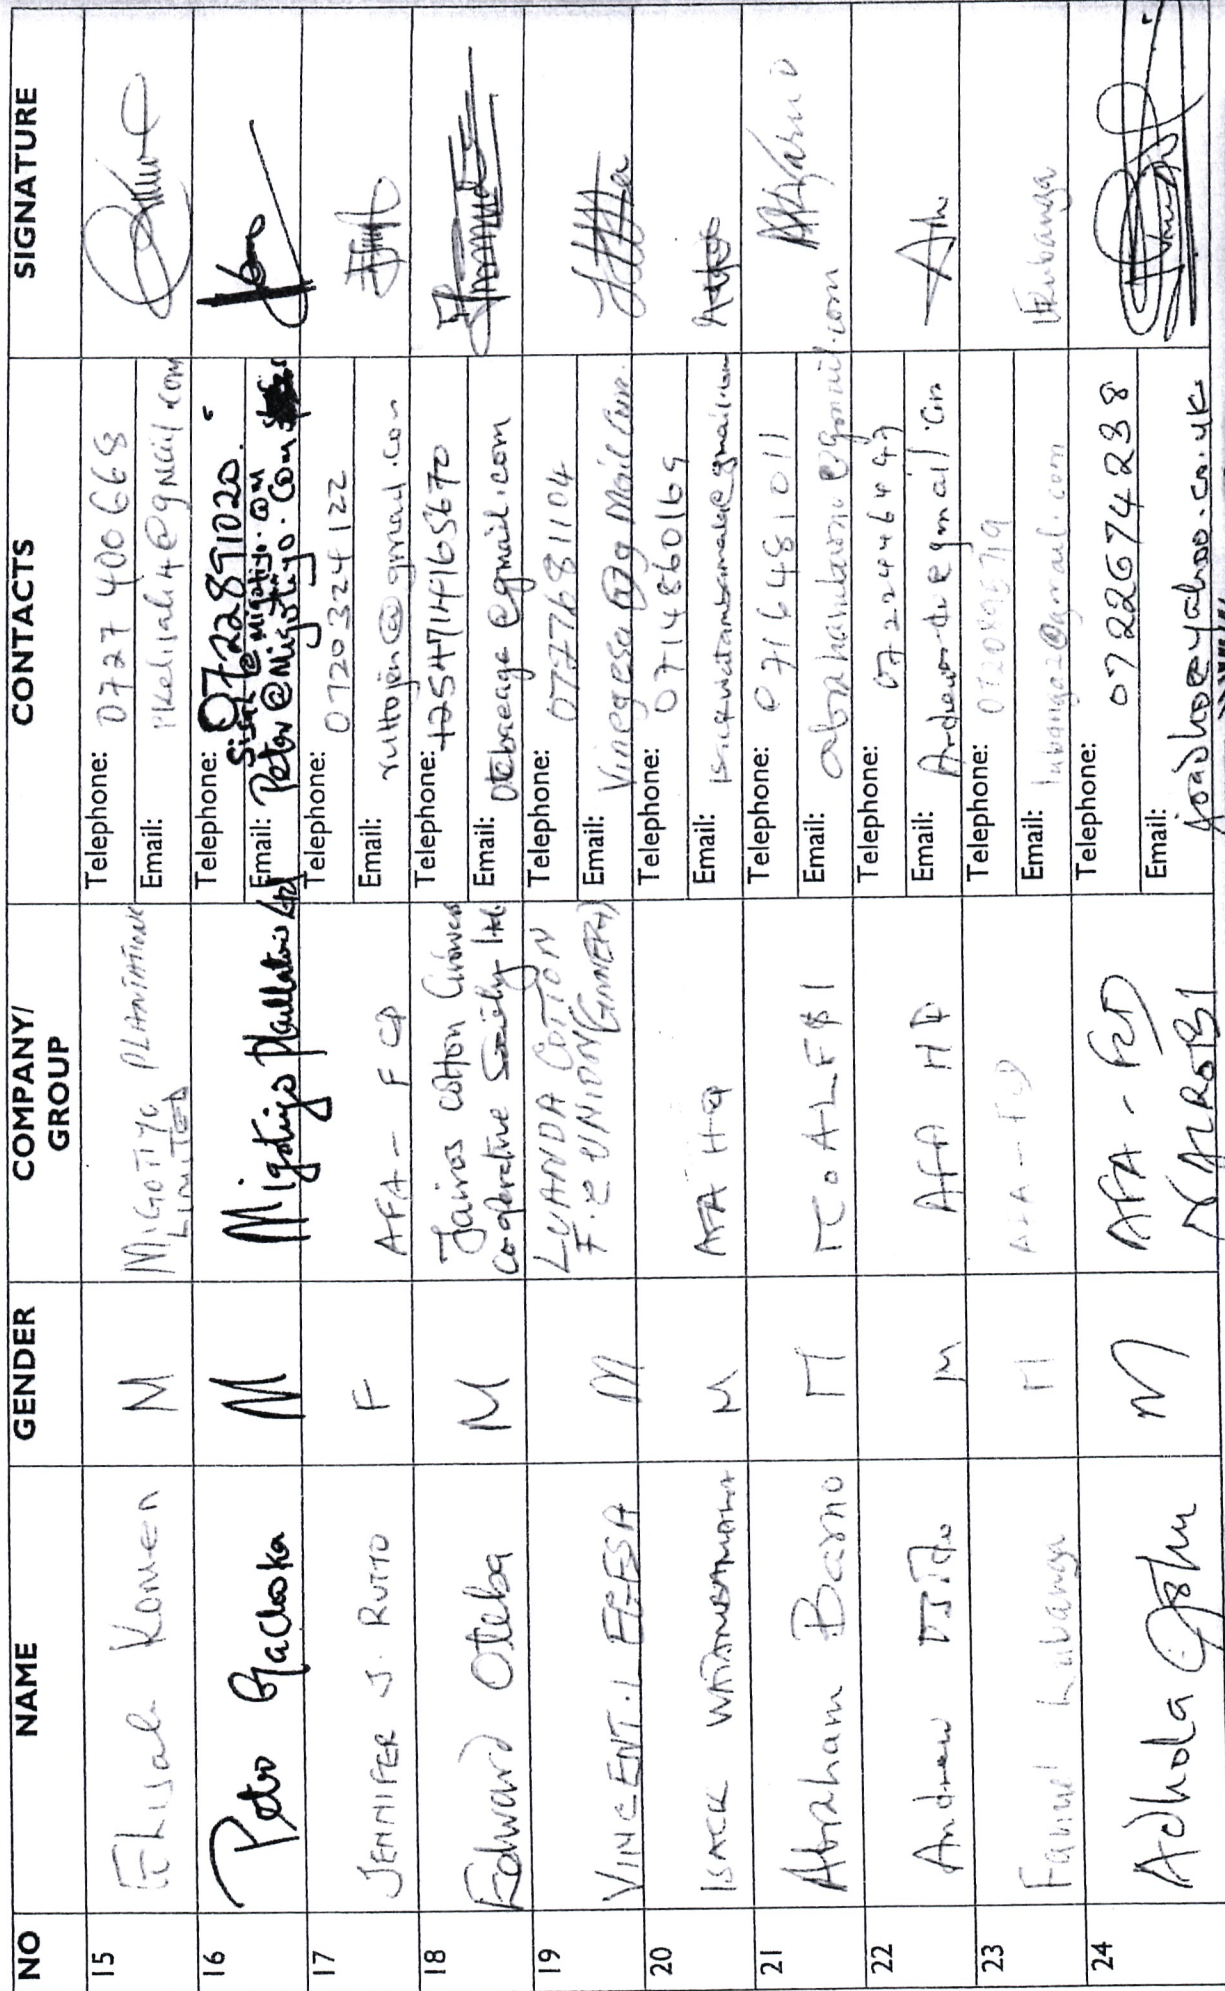 NO NAME GENDER COMPANY/ GROUP CONTACTS SIGNATURE
15 Komen M MIGOTIYO PLANTATIONS LIMITED
Telephone: 0727 400668
Email: @gmail.com
16 Peter M Migotiyo Plantations Ltd
Telephone: 0722891020.
Email: Peter@Migotiyo.Com
17 JENNIFER J. RUTTO F AFA - FCD
Telephone: 0720324122
Email: ruttojen@gmail.com
18 Edward Oteba M Jairos Cotton Growers Cooperative Society Ltd.
Telephone: +254714165670
Email: @gmail.com
19 VINCENT .L EGESA M LUANDA COTTON F.C UNION (GINNERY)
Telephone: 0727681104
Email: Vinegesa@gMail.Com.
20 ISACK WATAMBAMALA M AFA HQ
Telephone: 0714860169
Email: @gmail.com
21 Abraham Barno M
Telephone: 0716481011
Email: abrahambarno@gmail.com
22 Andrew M AFA
Telephone:
Email: @gmail.com
23 Lubanga M AFA - FCD
Telephone:
Email: lubanga2@gmail.com
24 Adhola M AFA - FCD NAIROBI
Telephone: 0722674238
Email: joadho@yahoo.co.uk